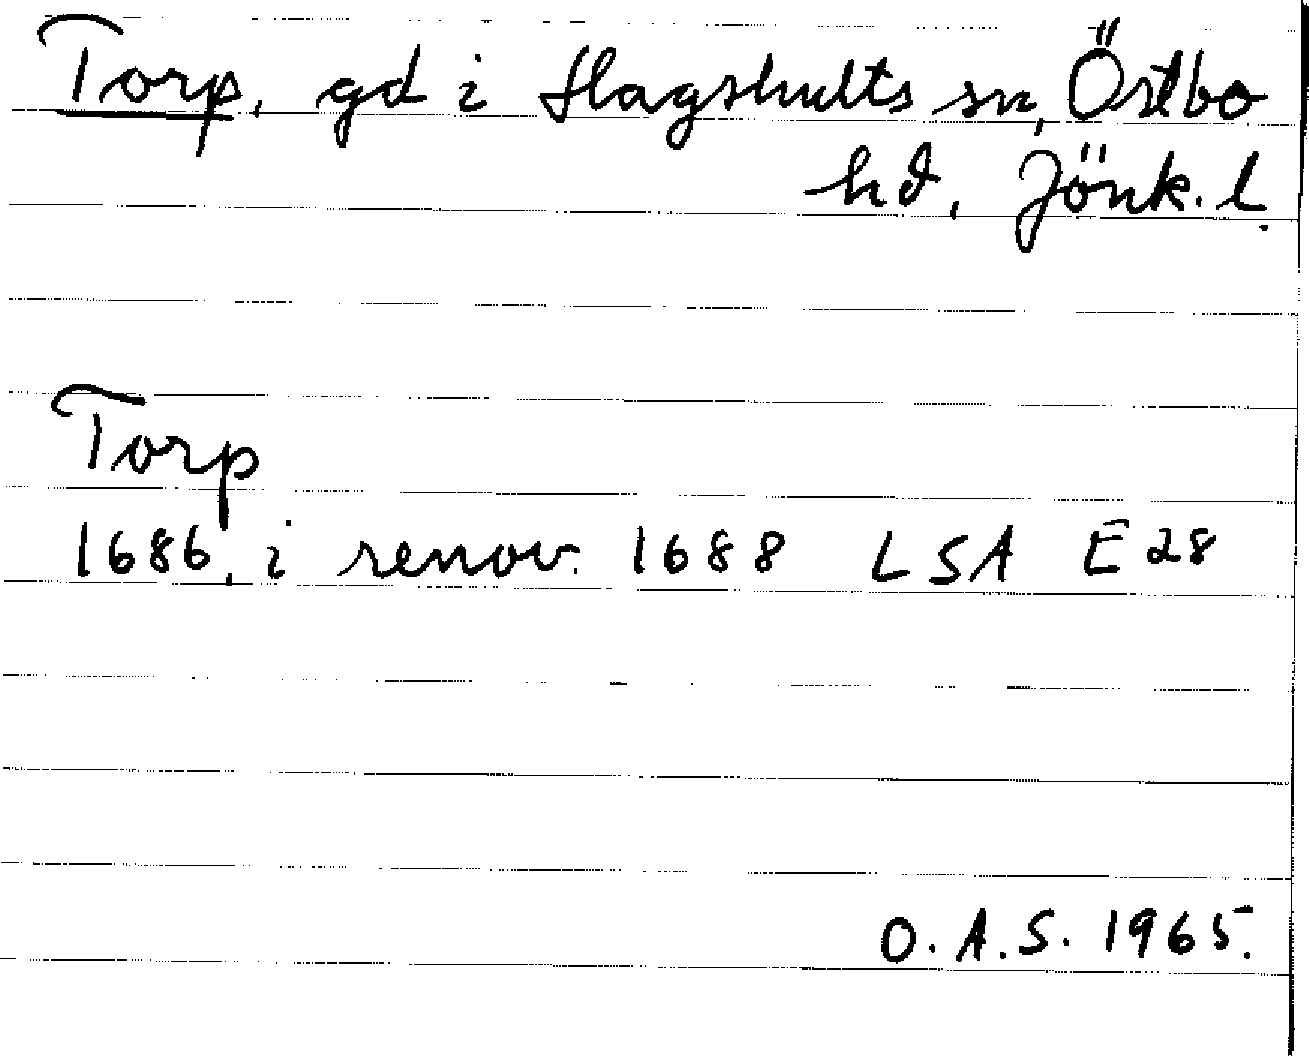 Torp, gd i Hagshults sn, Östbo
hd, Jönk. l.
Torp
1686, i renov. 1688 LSA E 28
O. A. S. 1965.